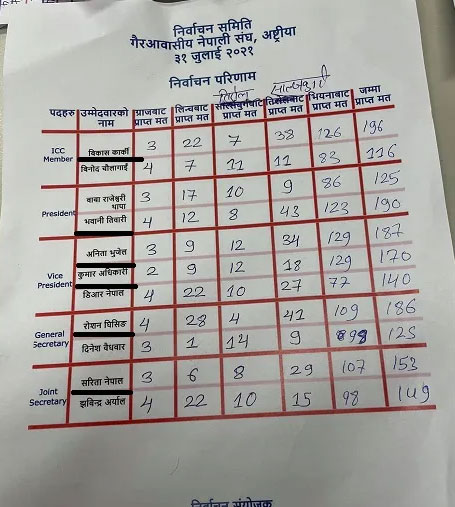 निर्वाचन समिति
गैरआवासीय नेपाली संघ, अष्ट्रीया
३१ जुलाई २०२१
निर्वाचन परिणाम
तिरोल साल्जबुर्ग
पदहरु उम्मेदवारको नाम ग्राजबाट प्राप्त मत लिन्जबाट प्राप्त मत साल्जबुर्गबाट प्राप्त मत तिरोलबाट प्राप्त मत भियनाबाट प्राप्त मत जम्मा प्राप्त मत
ICC Member विकास कार्की 3 22 7 38 126 196
विनोद चौलागाईं 4 7 11 11 83 116
President बाबा राजेश्वरी थापा 3 17 10 9 86 125
भवानी तिवारी 4 12 8 43 123 190
Vice President अनिता भुजेल 3 9 12 34 129 187
कुमार अधिकारी 2 9 12 18 129 170
डिआर नेपाल 4 22 10 27 77 140
General Secretary रोशन घिसिङ 4 28 4 41 109 186
दिनेश वैधवार 3 1 14 9 98 125
Joint Secretary सरिता नेपाल 3 6 8 29 107 153
झविन्द्र अर्याल 4 22 10 15 98 149
निर्वाचन संयोजक